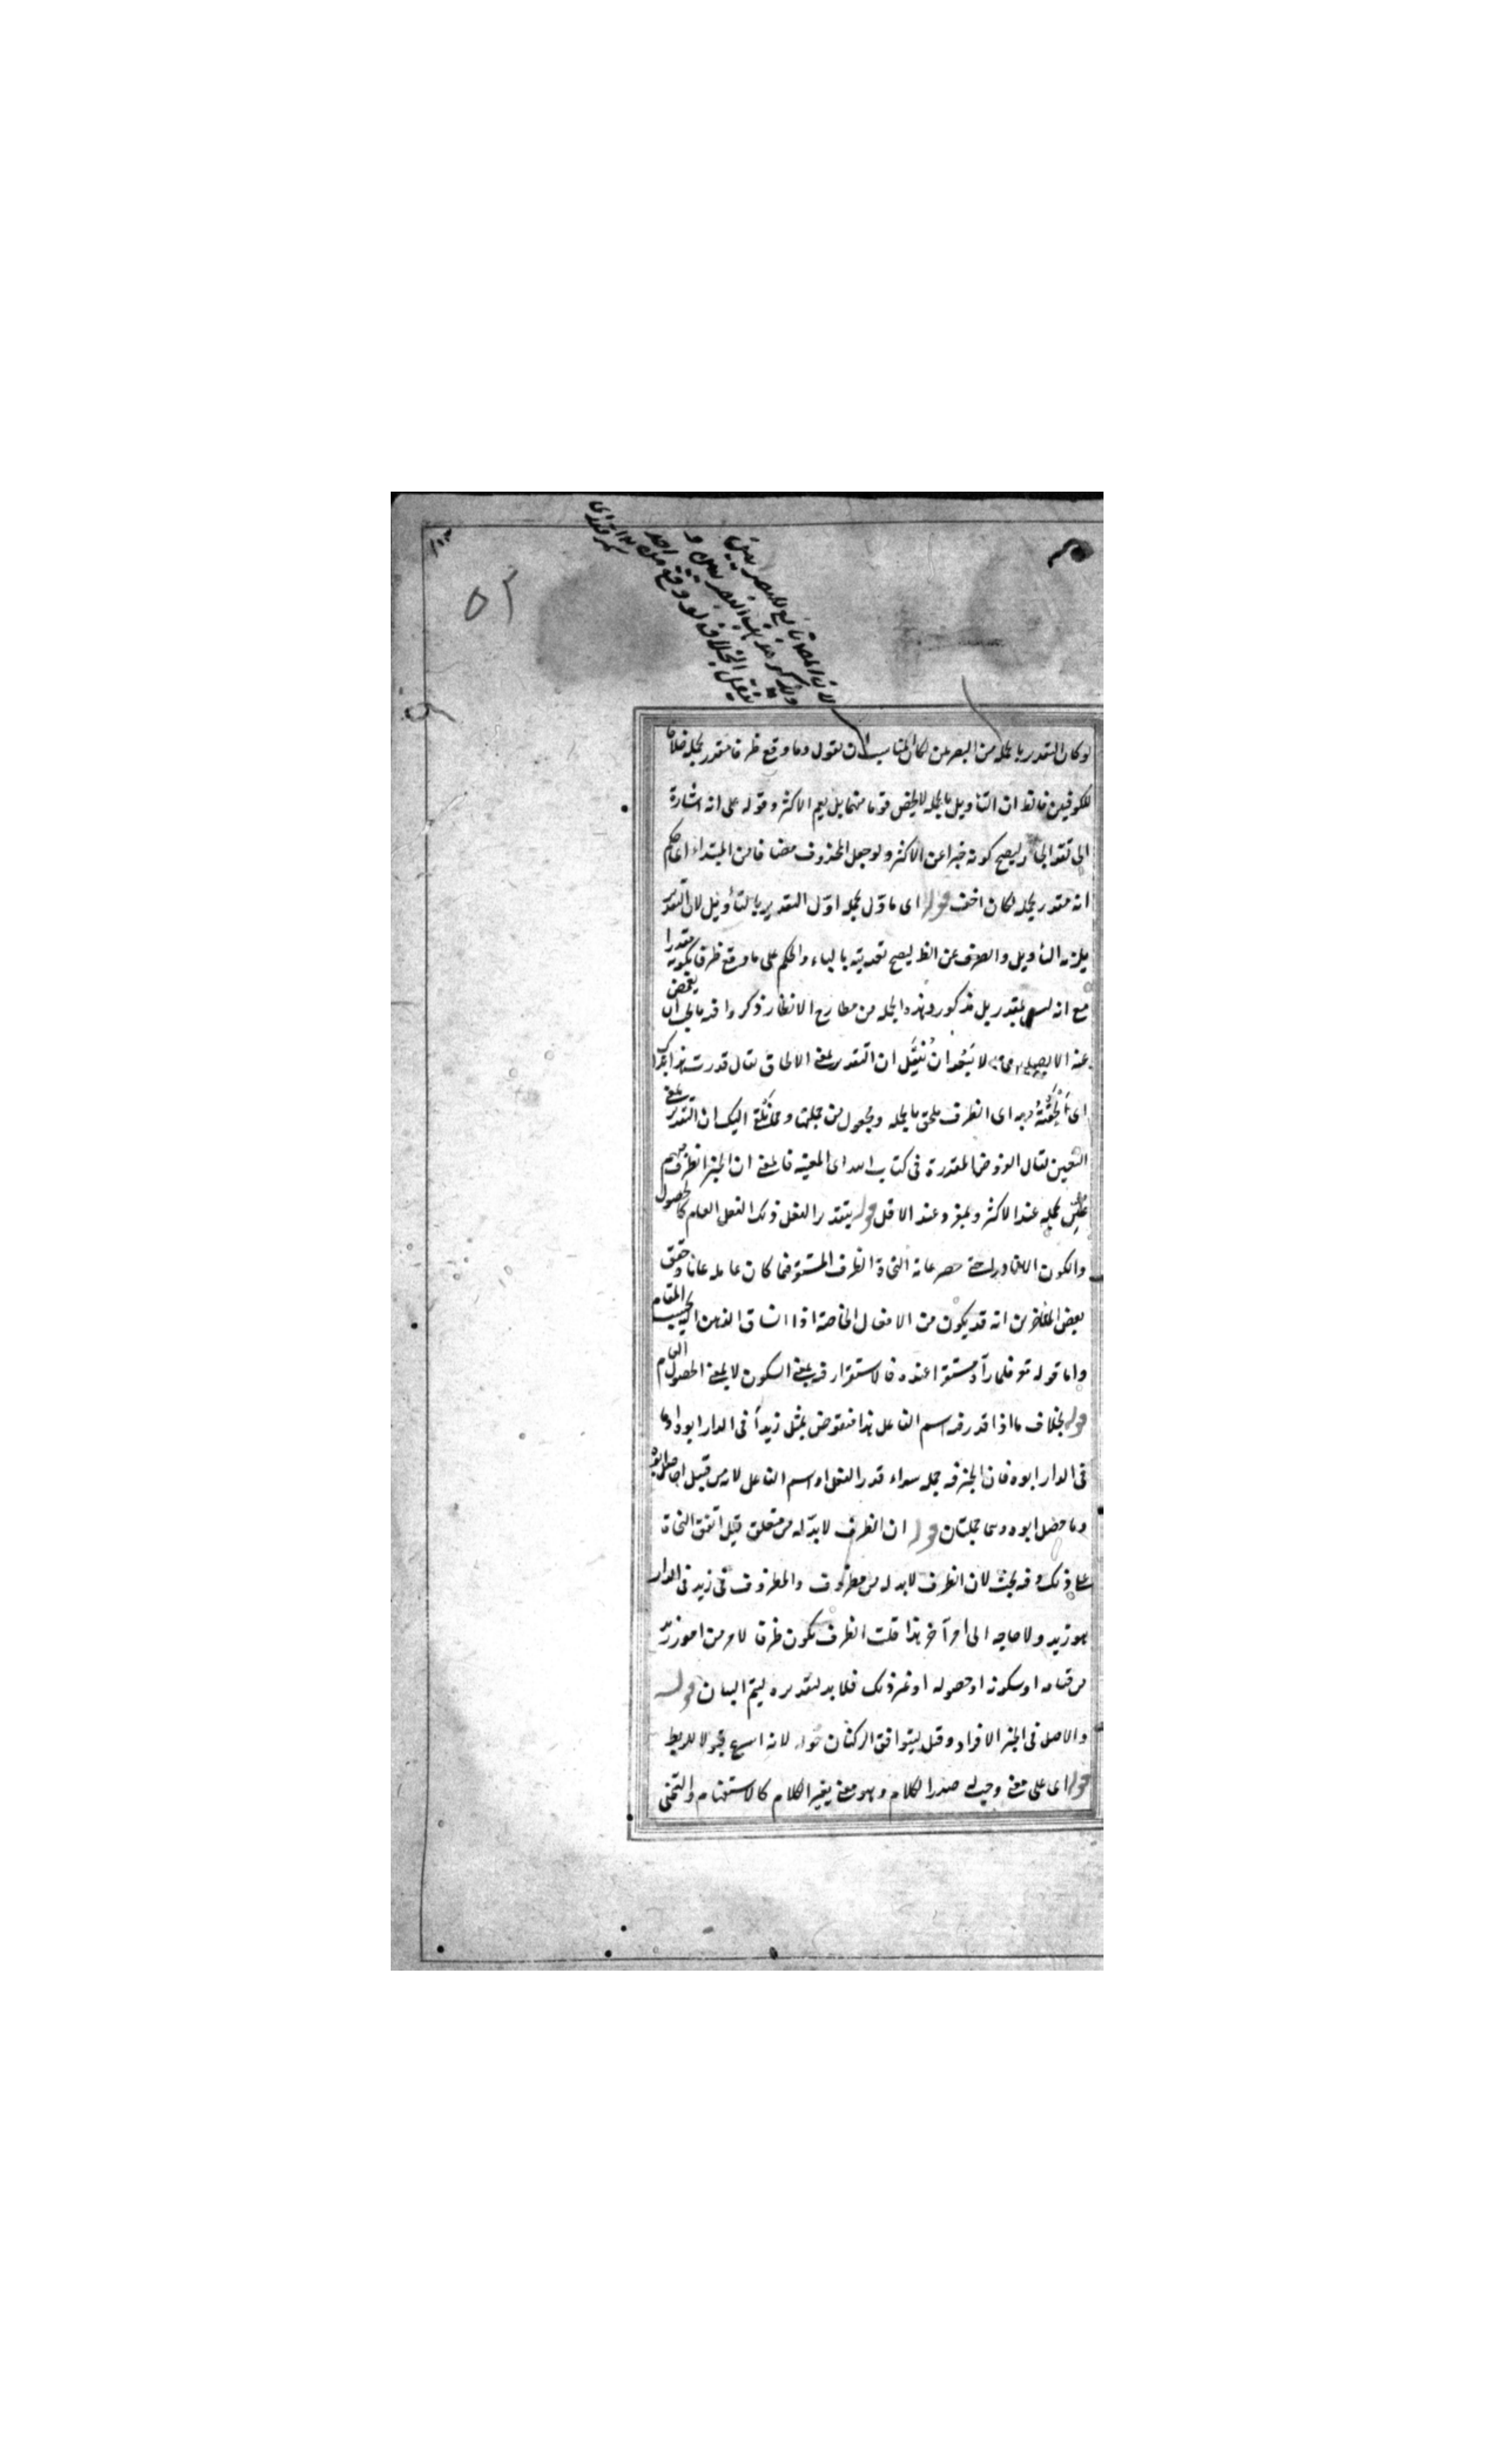 لان المص تابع للبصريين
ولذكر مذهب البصريين و
ينقل الخلاف لو وقع من احد
لو كان التقدير بالجملة من البصريين لكان المناسب ان يقول وما وقع ظرفا مقدر بجملة خلافا
للكوفيين فالظ ان التأويل بالجملة لا يخص قوما منهما بل يعم الاكثر وقوله على انه اشارة
الى تقدير ليصح كونه خبرا عن الاكثر ولو جعل المحذوف مضافا من المبتداء اى حكم
انه مقدر بجملة لكان اخف قوله اى ماول بجملة اول التقدير بالتأويل لان التقدير
يلزمه التأويل والصرف عن الظ ليصح تعديته بالباء والحكم على ما وقع ظرفا بكونه مقدرا
مع انه ليس بمقدر بل مذكور وهذه الجملة من مطارح الانظار ذكروا فيه ما يجب ان يغمض
عنه الابصار لا يبعد ان يقال ان التقدير بمعنى الالحاق يقال قدرت هذا بذاك
اى الحقته به اى الظرف ملحق بالجملة ومجعول من جملتها ومكنة اليك ان التقدير بمعنى
التعيين يقال الفروض المقدرة فى كتاب الله اى المعينة فالمعنى ان الخبر الظرف مبهم
عين بجملة عند الاكثر وبمفرد عند الاقل قوله بتقدير الفعل وذلك الفعل العام كالحصول
والكون حصر عامة النحاة الظرف المستقر فيما كان عامله عاما وحقق
بعض المتأخرين انه قد يكون من الافعال الخاصة اذا انساق الذهن اليه بحسب المقام
واما قوله تع فلما رآه مستقرا عنده فالاستقرار فيه بمعنى السكون لا بمعنى الحصول العام
قوله بخلاف ما اذا قدر فيه اسم الفاعل هذا منقوض بمثل زيد أ فى الدار ابوه او ما
فى الدار ابوه فان الخبر فيه جملة سواء قدر الفعل او اسم الفاعل لانه من قبيل احاصل ابوه
وما حصل ابوه وهما جملتان قوله ان الظرف لا بد له من متعلق قيل اتفق النحاة
على ذلك وفيه بحث لان الظرف لا بد له من مظروف والمظروف فى زيد فى الدار
هو زيد ولا حاجة الى امر آخر هذا قلت الظرف يكون ظرفا لامر من امور زيد
من قيامه او سكونه او حصوله او غير ذلك فلا بد لتقديره ليتم البيان قوله
والاصل فى الخبر الافراد وقيل ليتوافق الركنان قوله لانه اسرع قبولا للربط
قوله اى على معنى وجب له صدر الكلام وهو معنى يغير الكلام كالاستفهام والتمنى